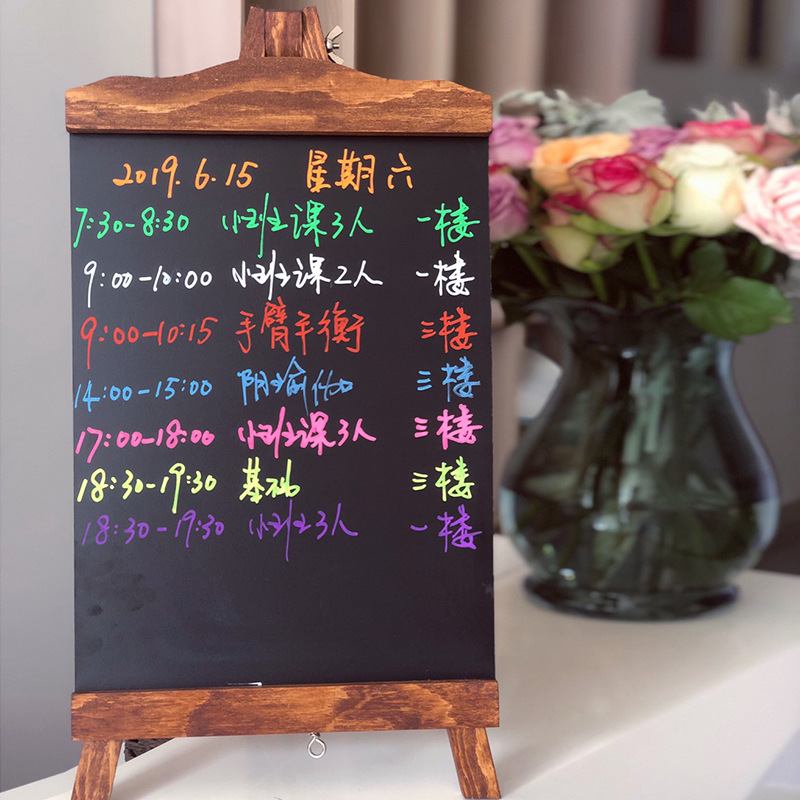 2019.6.15 星期六
7:30-8:30 小班课3人 一楼
9:00-10:00 小班课2人 一楼
9:00-10:15 手臂平衡 三楼
14:00-15:00 阴瑜伽 三楼
17:00-18:00 小班课3人 三楼
18:30-19:30 基础 三楼
18:30-19:30 小班3人 一楼